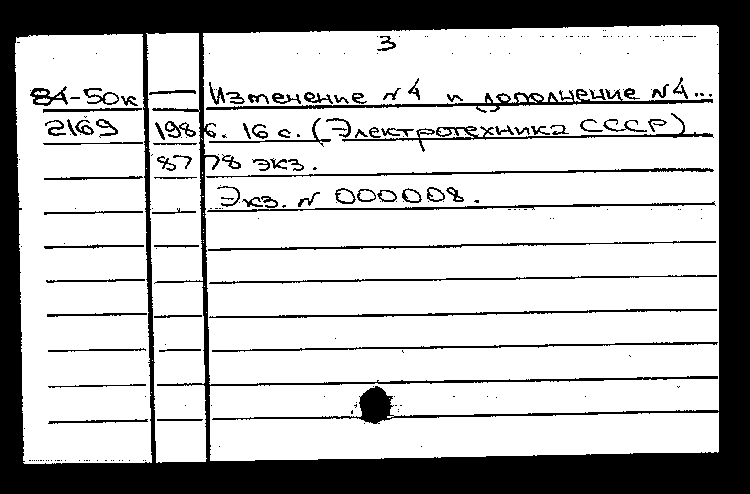 3
84-50к — Изменение №4 и дополнение №4...
2169 1986. 16 с. (Электротехника СССР).
8778 экз.
Экз. № 000008.